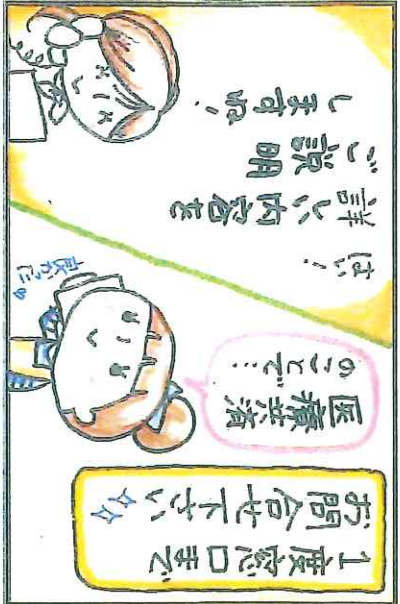 1度窓口まで
お問合せ下さい
医療共済
のことで…
はい！
詳しい内容を
ご説明
しますね！